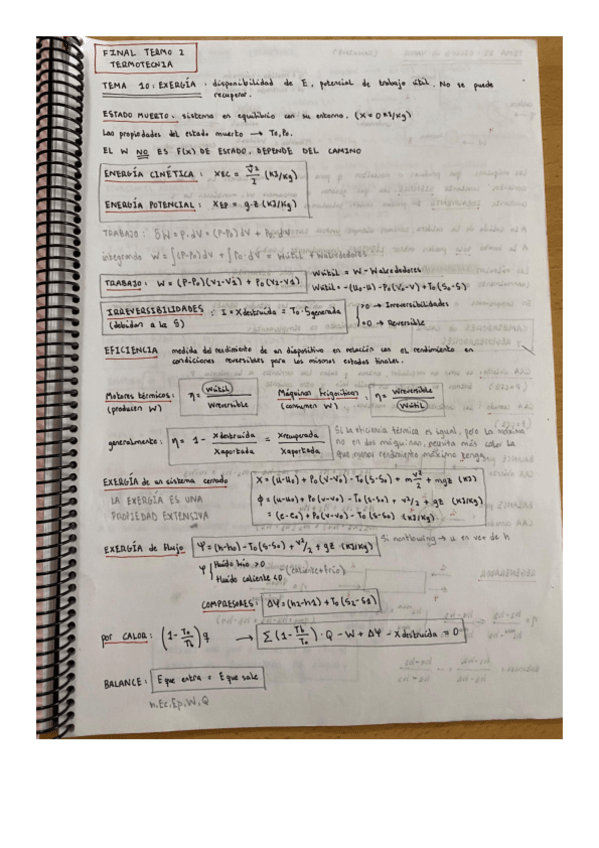 FINAL TERMO 2
TERMOTECNIA
TEMA 10: EXERGÍA: disponibilidad de E, potencial de trabajo útil. No se puede
recuperar.
ESTADO MUERTO: sistema en equilibrio con su entorno. (X=0 KJ/Kg)
Las propiedades del estado muerto → To, Po.
EL W NO ES F(X) DE ESTADO, DEPENDE DEL CAMINO
ENERGÍA CINÉTICA: XEC = V²/2 (KJ/Kg)
ENERGÍA POTENCIAL: XEP = g·z (KJ/Kg)
TRABAJO: δW = P·dV = (P-Po)dV + Po·dV
integrando W = ∫(P-Po)dV + ∫Po·dV = Wútil + Walrededores
TRABAJO: W = (P-Po)(V2-V1) + Po(V2-V1)
Wútil = W - Walrededores
Wútil = -(Uo-U) - Po(Vo-V) + To(So-S)
IRREVERSIBILIDADES: I = Xdestruida = To·Sgenerada
(debidas a la S)
>0 → Irreversibilidades
=0 → Reversible
EFICIENCIA medida del rendimiento de un dispositivo en relación con el rendimiento en
condiciones reversibles para los mismos estados finales.
Motores térmicos: η = Wútil / Wreversible
(producen W)
Máquinas Frigoríficas: η = Wreversible / Wútil
(consumen W)
generalmente: η = 1 - Xdestruida / Xaportada = Xrecuperada / Xaportada
Si la eficiencia térmica es igual, pero la máxima
no en dos máquinas, necesita más calor la
que menor rendimiento máximo tenga.
EXERGÍA de un sistema cerrado
X = (U-Uo) + Po(V-Vo) - To(S-So) + m V²/2 + mgz (KJ)
LA EXERGÍA ES UNA
PROPIEDAD EXTENSIVA
ϕ = (u-uo) + Po(v-vo) - To(s-so) + v²/2 + gz (KJ/Kg)
= (e-eo) + Po(v-vo) - To(s-so) (KJ/Kg)
EXERGÍA de flujo Ψ = (h-ho) - To(s-so) + v²/2 + gz (KJ/Kg)
Si nonflowing → u en vez de h
Ψ fluido frío >0
fluido caliente <0
(caliente→frío)
COMPRESORES: ΔΨ = (h2-h1) + To(S2-S0)
por CALOR: (1 - To/Tb) q → Σ(1 - Tb/To)·Q - W + ΔΨ - Xdestruida = 0
BALANCE: E que entra = E que sale
h, Ec, Ep, W, Q